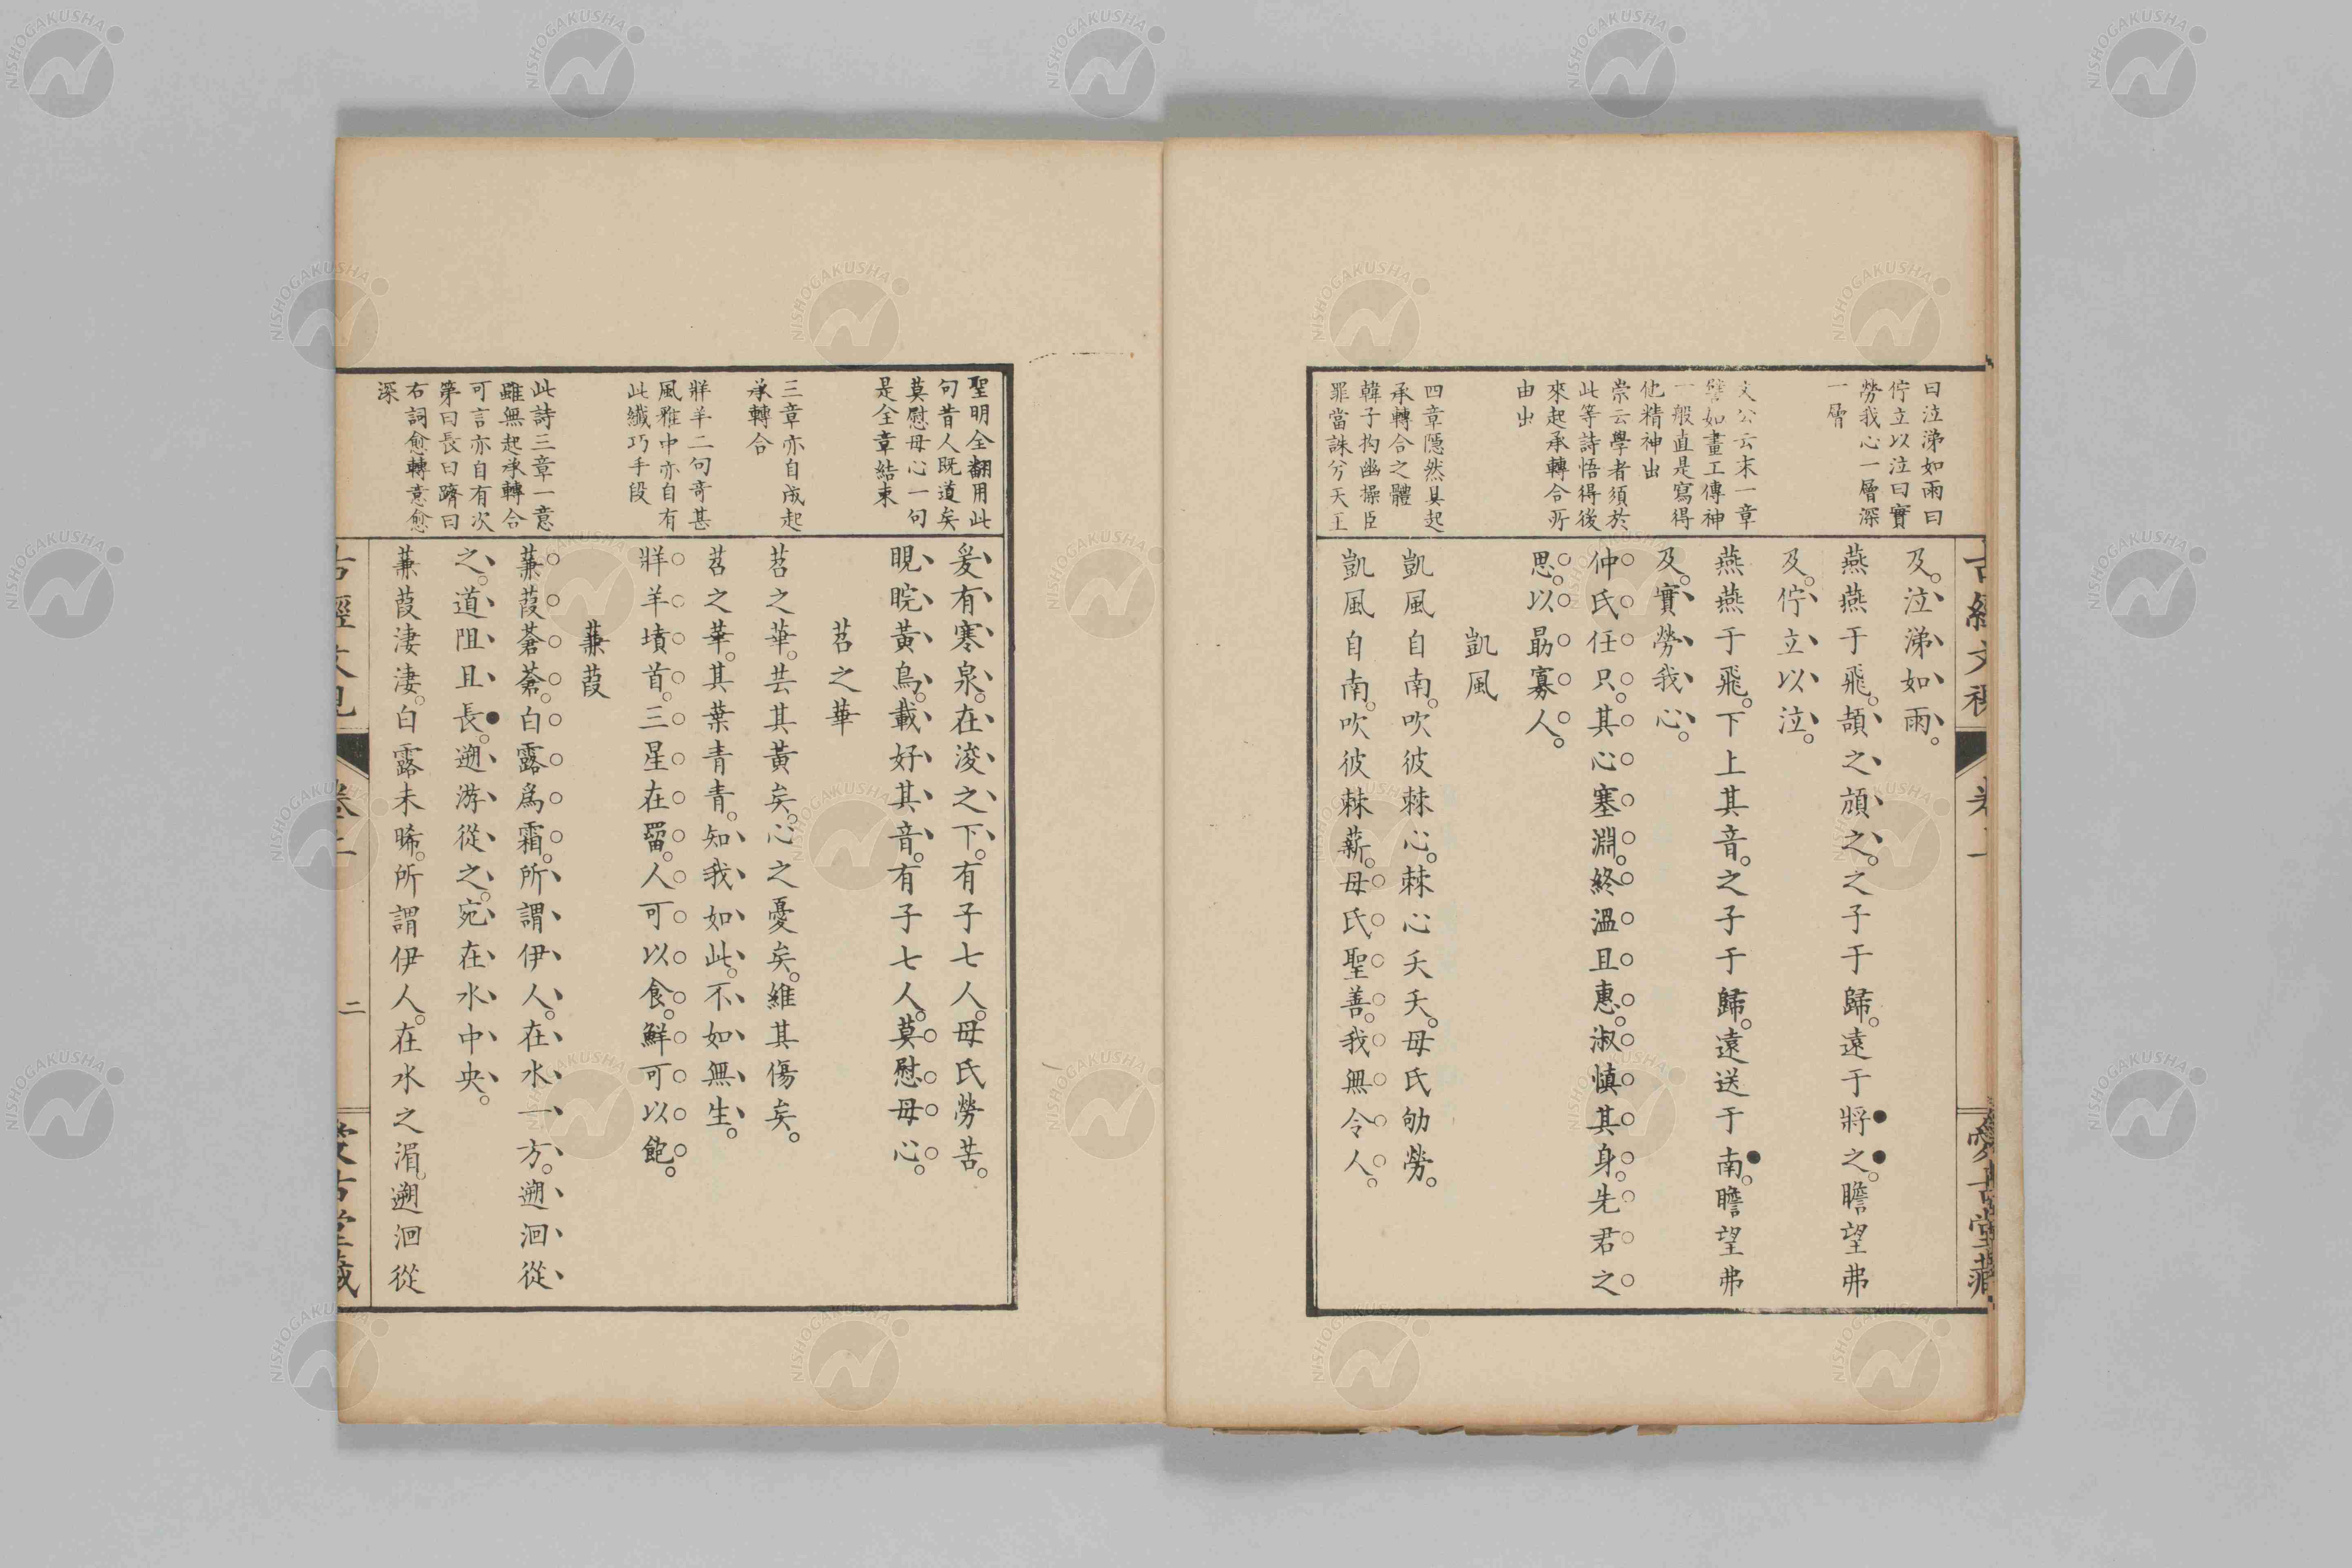 曰泣涕如雨曰
佇立以泣曰實
勞我心一層深
一層
文公云末一章
譬如畫工傳神
一般直是寫得
他精神出
崇云學者須於
此等詩悟得後
來起承轉合所
由出
四章隱然具起
承轉合之體
韓子拘幽操臣
罪當誅兮天王
及。泣涕如雨。
燕燕于飛。頡之頏之。之子于歸。遠于將之。瞻望弗
及。佇立以泣。
燕燕于飛。下上其音。之子于歸。遠送于南。瞻望弗
及。實勞我心。
仲氏任只。其心塞淵。終溫且惠。淑慎其身。先君之
思。以勗寡人。
凱風
凱風自南。吹彼棘心。棘心夭夭。母氏劬勞。
凱風自南。吹彼棘薪。母氏聖善。我無令人。
聖明全翻用此
句昔人既道矣
莫慰母心一句
是全章結束
三章亦自成起
承轉合
牂羊二句奇甚
風雅中亦自有
此纖巧手段
此詩三章一意
雖無起承轉合
可言亦自有次
第曰長曰躋曰
右詞愈轉意愈
深
爰有寒泉。在浚之下。有子七人。母氏勞苦。
睍睆黃鳥。載好其音。有子七人。莫慰母心。
苕之華
苕之華。芸其黃矣。心之憂矣。維其傷矣。
苕之華。其葉青青。知我如此。不如無生。
牂羊墳首。三星在罶。人可以食。鮮可以飽。
蒹葭
蒹葭蒼蒼。白露爲霜。所謂伊人。在水一方。遡洄從
之。道阻且長。遡游從之。宛在水中央。
蒹葭淒淒。白露未晞。所謂伊人。在水之湄。遡洄從
二
NISHOGAKUSHA